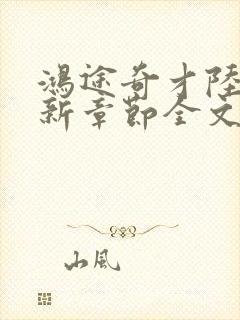 鴻途奇才陸
新章節全文
山風